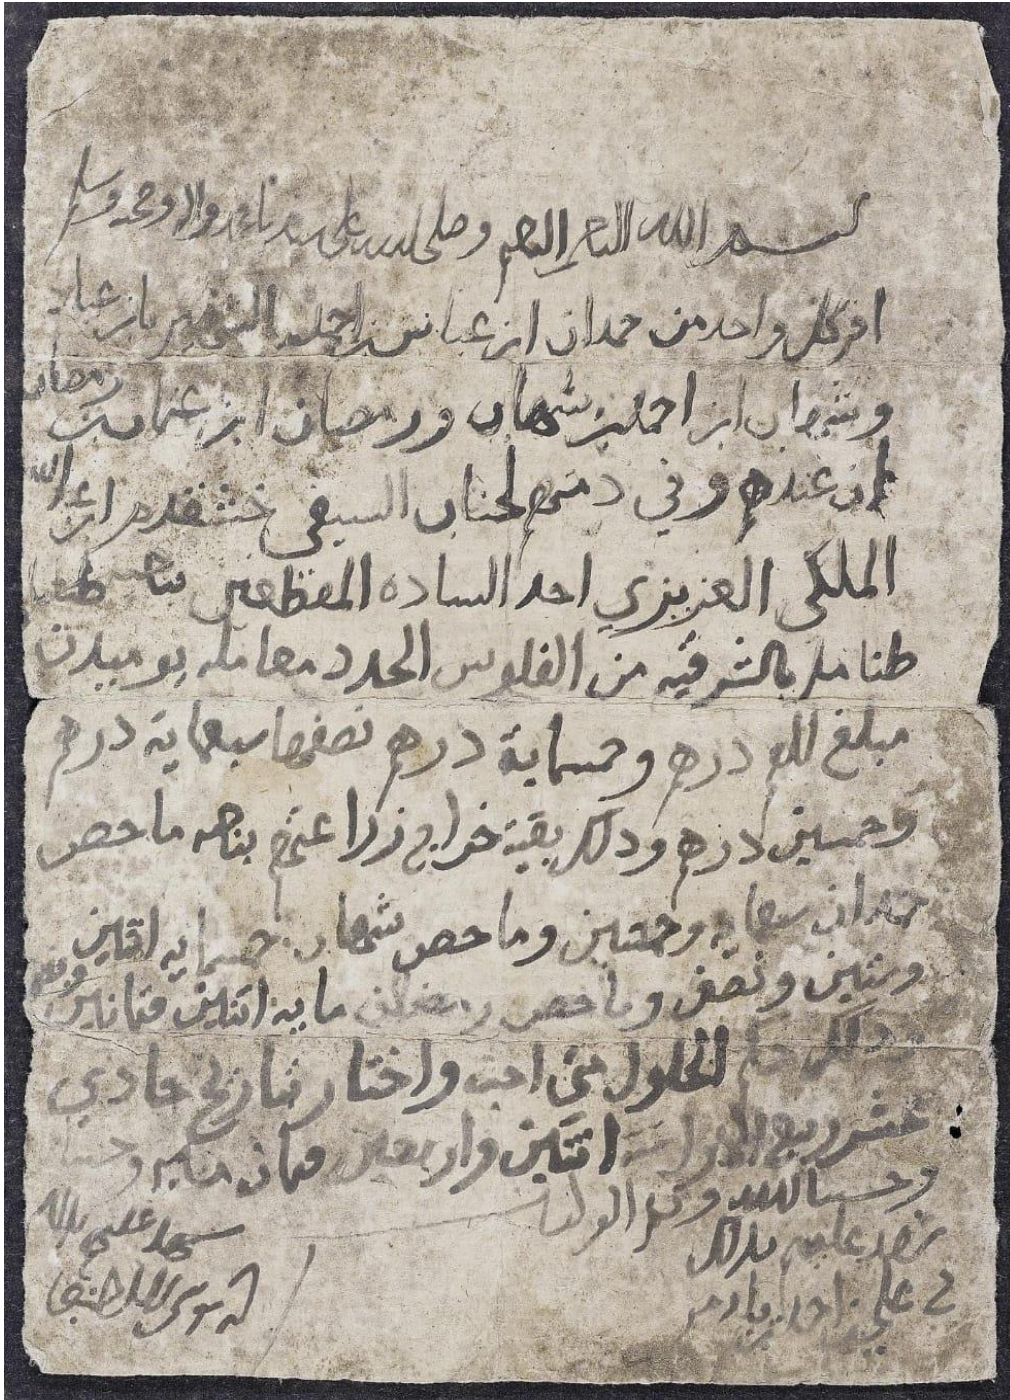 بسم الله الرحمن الرحيم وصلى الله على سيدنا محمد واله وصحبه وسلم
اقر كل واحد من حمدان ابن عباس بن احمد
وشهاب ابن احمد بن شهاب ورمضان ابن عثمان بن رمضان
ان عندهم وفي دمتهم لجناب السيفي خشقدم ابن عبد الله
الملكي العزيزي احد الساده المقطعين بناحية
طنامل بالشرقية من الفلوس الجدد معاملة يوميدن
مبلغ الف درهم وخمسماية درهم نصفها سبعماية درهم
وخمسين درهم ودلك بقية خراج زراعتهم بناحية ما خص
حمدان سبعمايه وخمسين وما خص شهاب خمسمايه اتنين
وستين ونصف وما خص رمضان مايه اتنين وتمانين ونصف
دلك حكم الحلول متى احب واختار بتاريخ حادي
عشر ربيع الاول سنة اتنين واربعين وتمان مايه وحسبنا
وحسبنا الله ونعم الوكيل
شهد عليهم بدلك
شهد عليهم بدلك
علي بن احمد بن
موسى